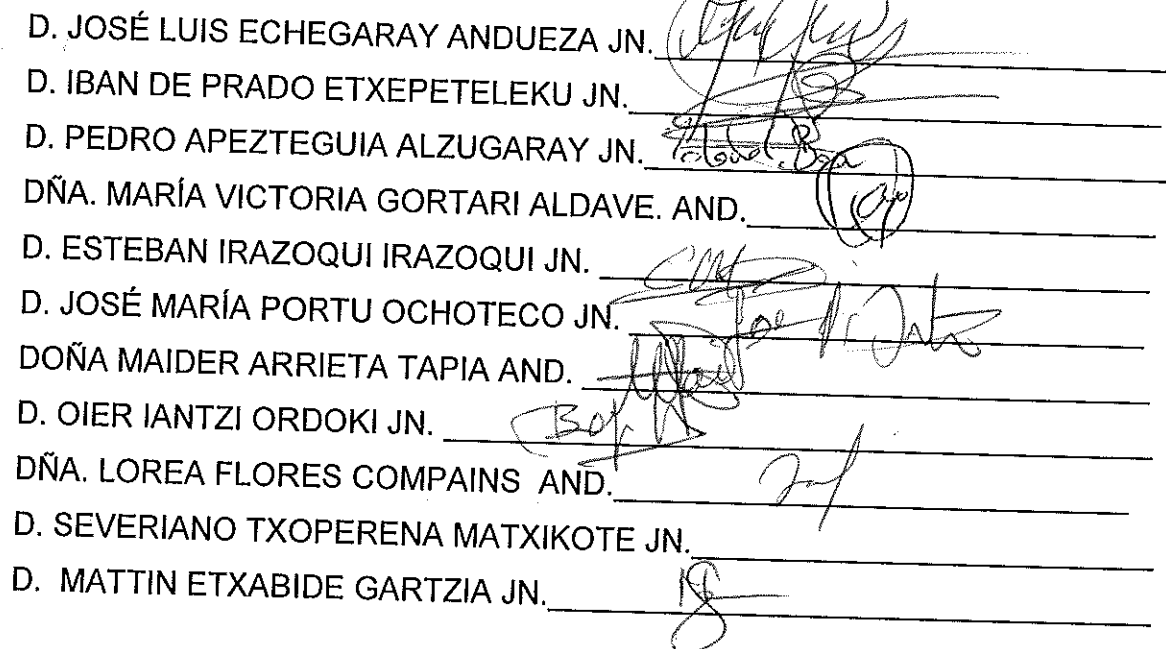 D. JOSÉ LUIS ECHEGARAY ANDUEZA JN.
D. IBAN DE PRADO ETXEPETELEKU JN.
D. PEDRO APEZTEGUIA ALZUGARAY JN.
DÑA. MARÍA VICTORIA GORTARI ALDAVE. AND.
D. ESTEBAN IRAZOQUI IRAZOQUI JN.
D. JOSÉ MARÍA PORTU OCHOTECO JN.
DOÑA MAIDER ARRIETA TAPIA AND.
D. OIER IANTZI ORDOKI JN.
DÑA. LOREA FLORES COMPAINS AND.
D. SEVERIANO TXOPERENA MATXIKOTE JN.
D. MATTIN ETXABIDE GARTZIA JN.